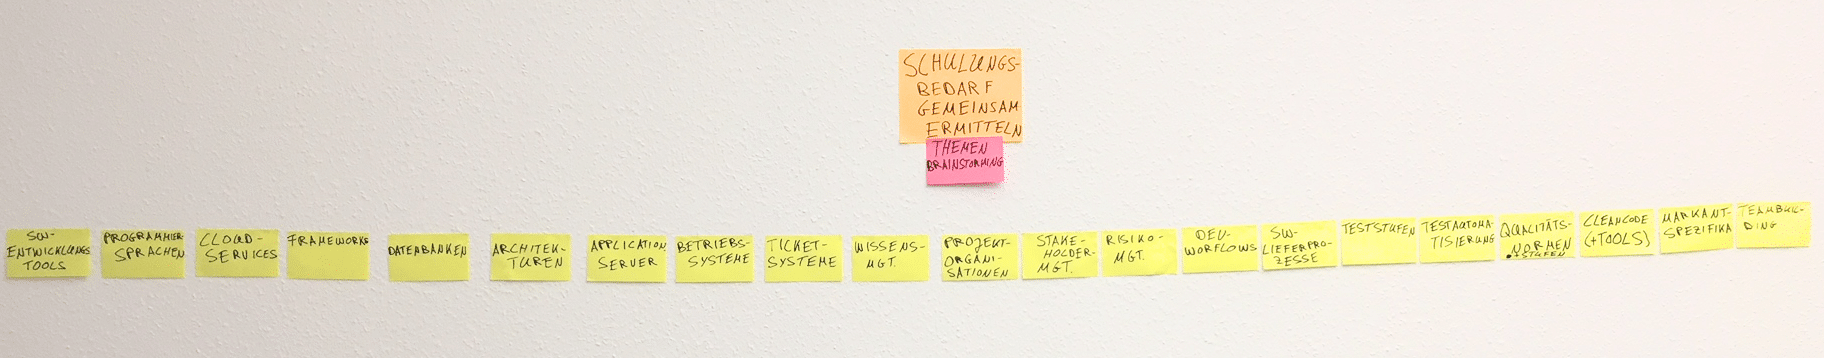 SCHULUNGS-
BEDARF
GEMEINSAM
ERMITTELN
THEMEN
BRAINSTORMING
SW-
ENTWICKLUNGS
TOOLS
PROGRAMMIER
SPRACHEN
CLOUD-
SERVICES
FRAMEWORKS
DATENBANKEN
ARCHITEK-
TUREN
APPLICATION
SERVER
BETRIEBS-
SYSTEME
TICKET-
SYSTEME
WISSENS-
MGT.
PROJEKT-
ORGANI-
SATIONEN
STAKE-
HOLDER-
MGT.
RISIKO-
MGT.
DEV-
WORFLOWS
SW-
LIEFERPRO-
ZESSE
TESTSTUFEN
TESTAUTOMA-
TISIERUNG
QUALITÄTS-
NORMEN
+STUFEN
CLEANCODE
(+TOOLS)
MARKANT-
SPEZIFIKA
TEAMBUIL-
DING